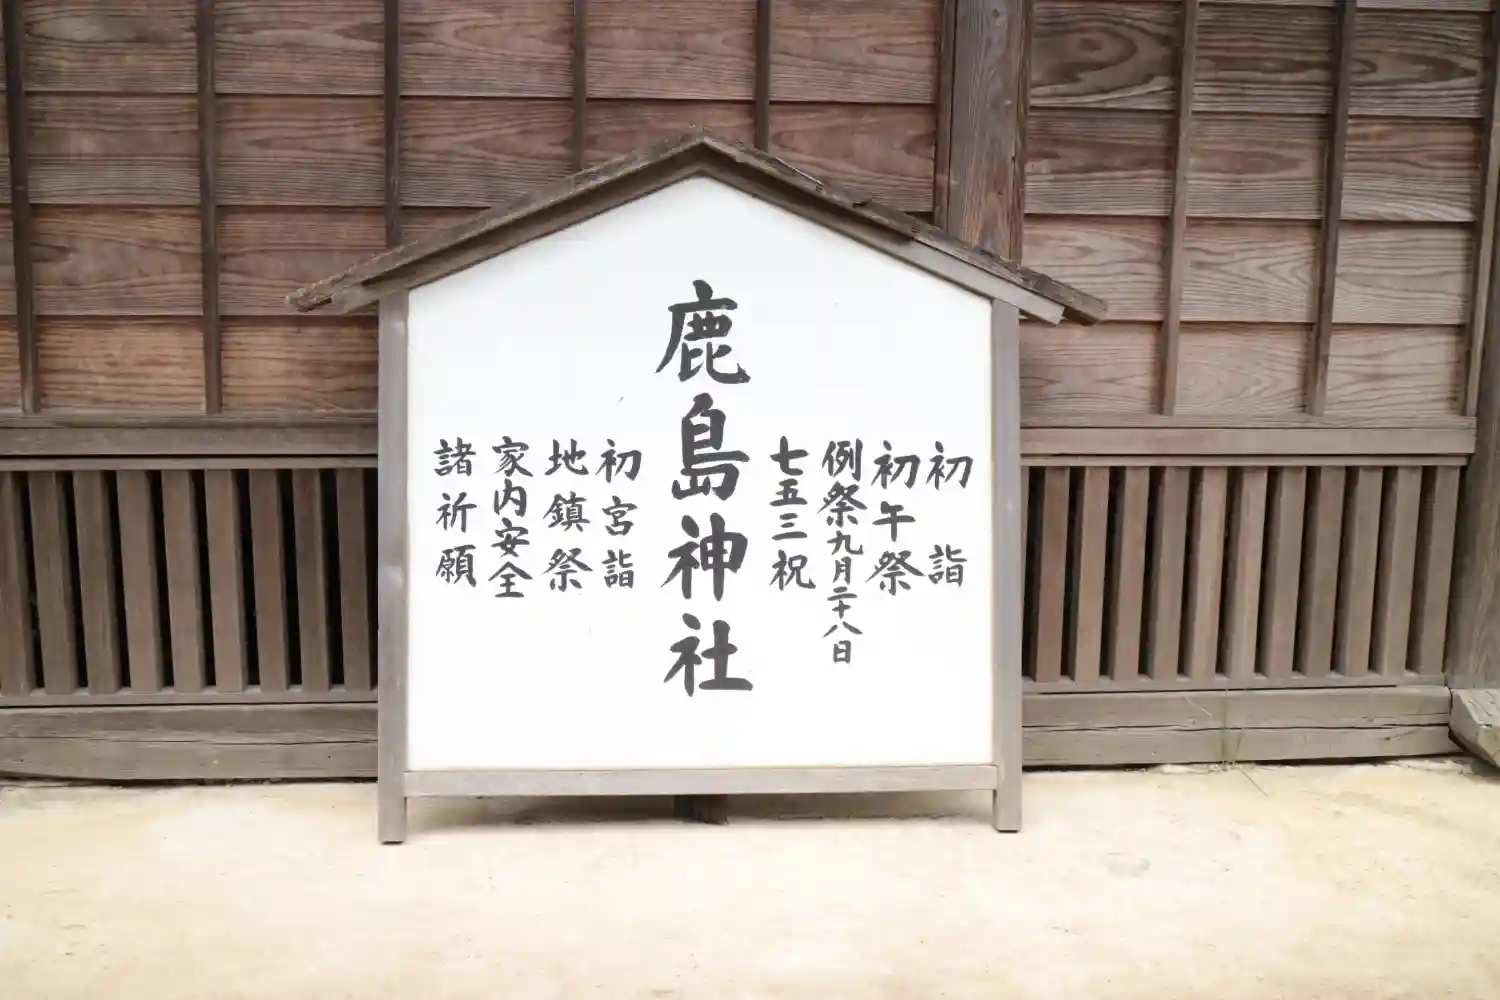 初詣
初午祭
例祭九月二十八日
七五三祝
鹿島神社
初宮詣
地鎮祭
家内安全
諸祈願